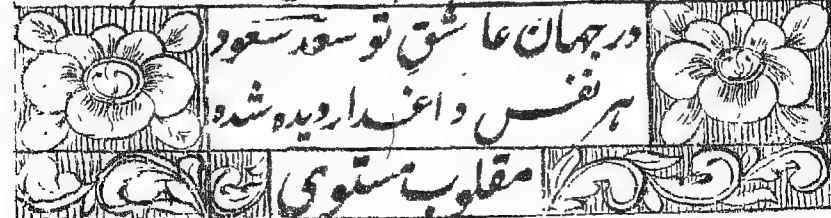 در جهان عاشق تو سعد سعود
هر نفس داغدار دیده شده
مقلوب مستوی